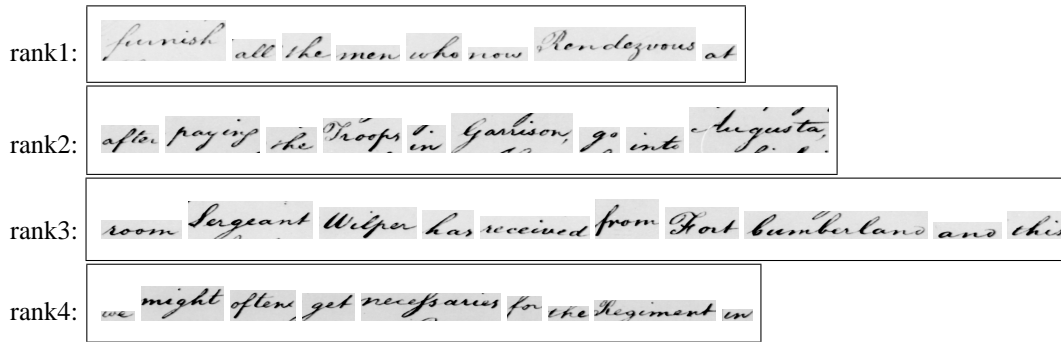 rank1: furnish all the men who now Rendezvous at
rank2: after paying the Troops in Garrison, go into Augusta,
rank3: room Sergeant Wilper has received from Fort Cumberland and this
rank4: we might often get necessaries for the Regiment in